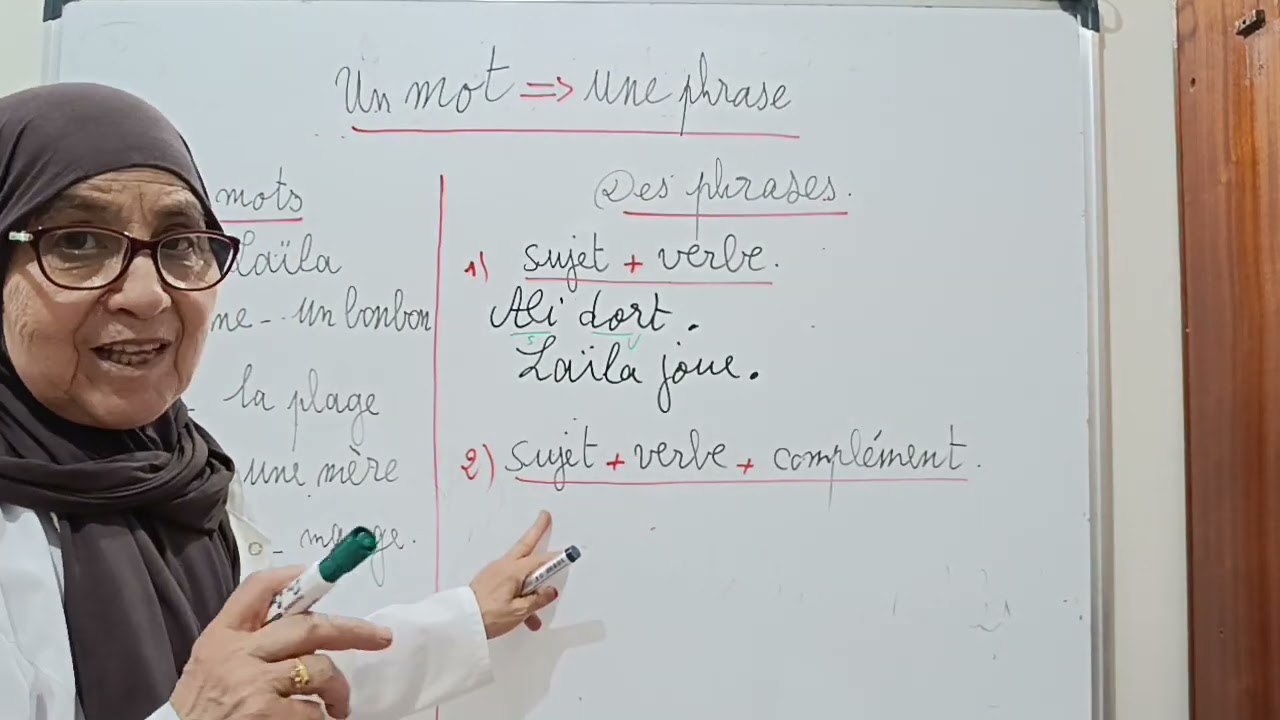 Un mot => une phrase
mots
Laïla
me - un bonbon
- la plage
une mère
- mange.
Des phrases.
1) sujet + verbe.
Ali dort.
s v
Laïla joue.
2) sujet + verbe + complément.